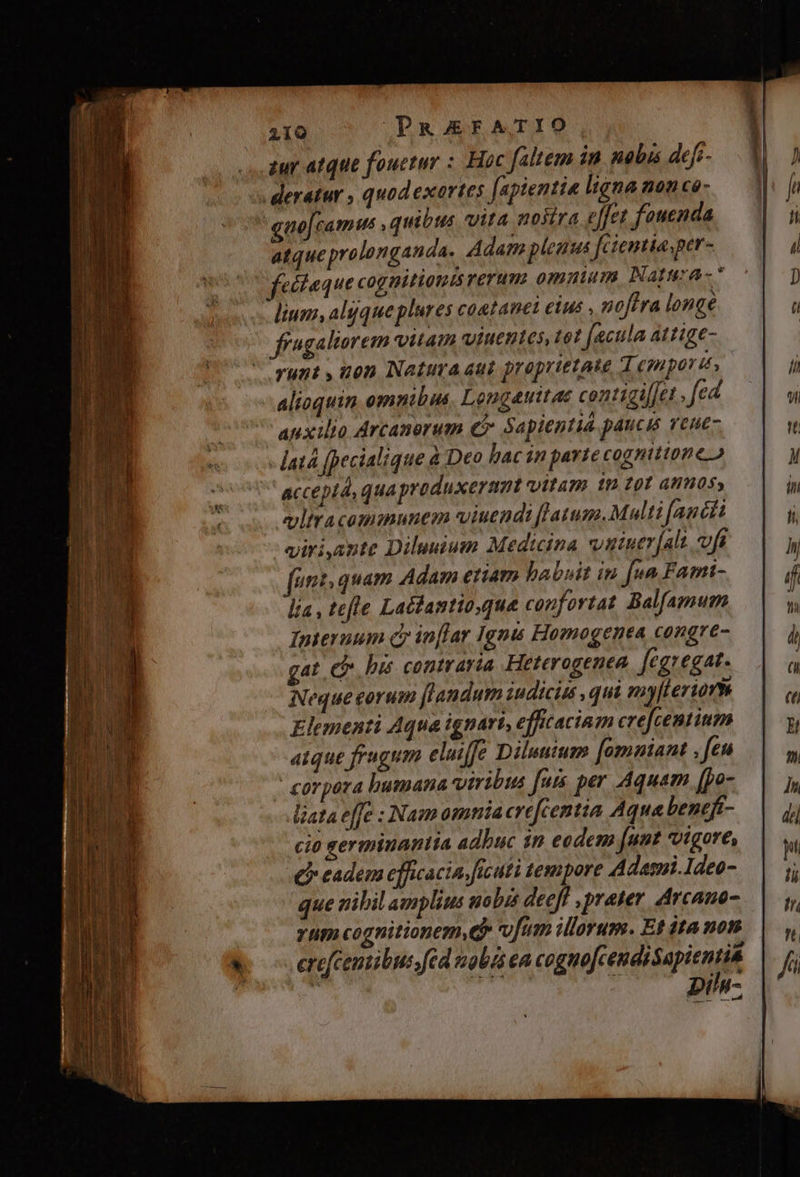 210 PRÆFATIO
tur atque fouetur : Hoc saltem in nobis desi-
deratur , quod exortes sapientiæ ligna non co-
gnoscamus , quibus vita nostra esset fouenda
atque prolonganda. Adam plenus scientia, per-
fectaque cognitionis rerum omnium Natura-
lium, alijque plures coætanei eius , nostra longè
frugaliorem vitam viuentes, tot sæcula attige-
runt , non Natura aut proprietate Temporis,
alioquin omnibus Longæuitas contigisset , sed
auxilio Arcanorum & Sapientiâ paucis reue-
latâ specialique à Deo hac in parte cognitione
acceptâ, qua produxerunt vitam in tot annos,
vltra communem viuendi statum. Multi sancti
viri, ante Diluuium Medicina vniuersali vsi
sunt, quam Adam etiam habuit in sua Fami-
lia, teste Lactantio, quæ confortat Balsamum
Internum & instar Ignis Homogenea congre-
gat & his contraria Heterogenea segregat.
Neque eorum standum iudiciis , qui mysteriorum
Elementi Aquæ ignari, efficaciam crescentium
atque frugum eluisse Diluuium somniant , seu
corpora humana viribus suis per Aquam spo-
liata esse : Nam omnia crescentia Aquæ benefi-
cio germinantia adhuc in eodem sunt vigore,
& eadem efficacia, sicuti tempore Adami. Ideo-
que nihil amplius nobis deest , præter Arcano-
rum cognitionem, & vsum illorum. Et ita non
crescentibus, sed nobis ea cognoscendi Sapientiâ
Dilu-